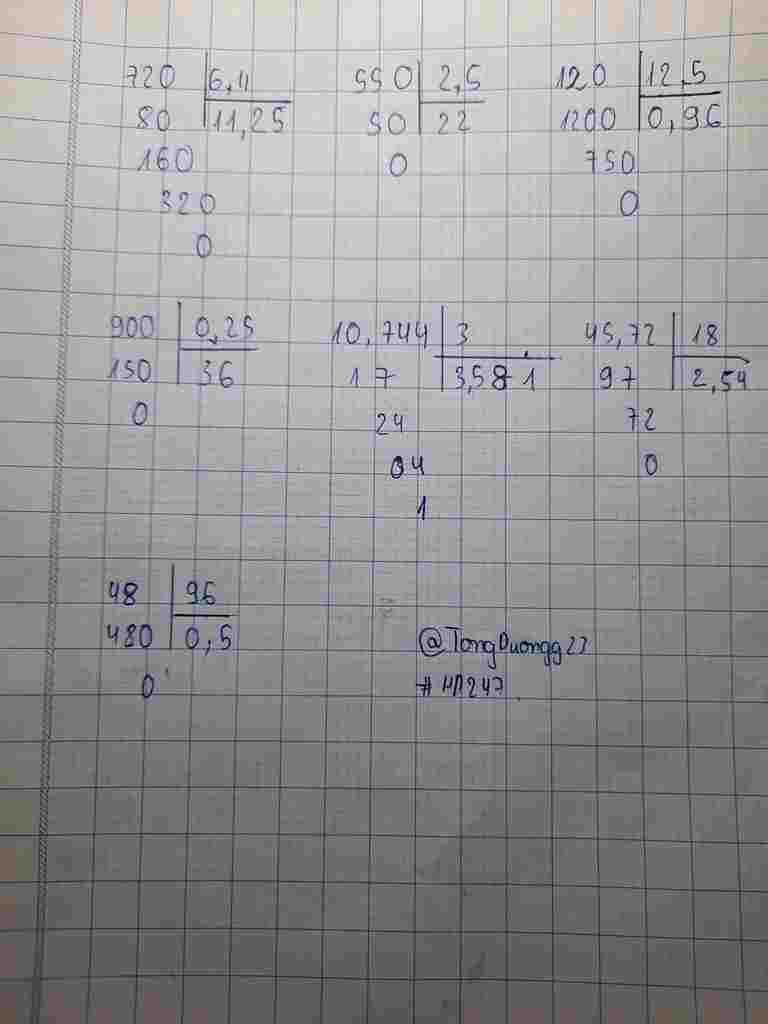 720 6,4
80 11,25
160
320
0
550 2,5
50 22
0
120 12,5
1200 0,96
750
0
900 0,25
150 36
0
10,744 3
17 3,581
24
04
1
45,72 18
97 2,54
72
0
48 96
480 0,5
0
@TongDuongg23
#H/247